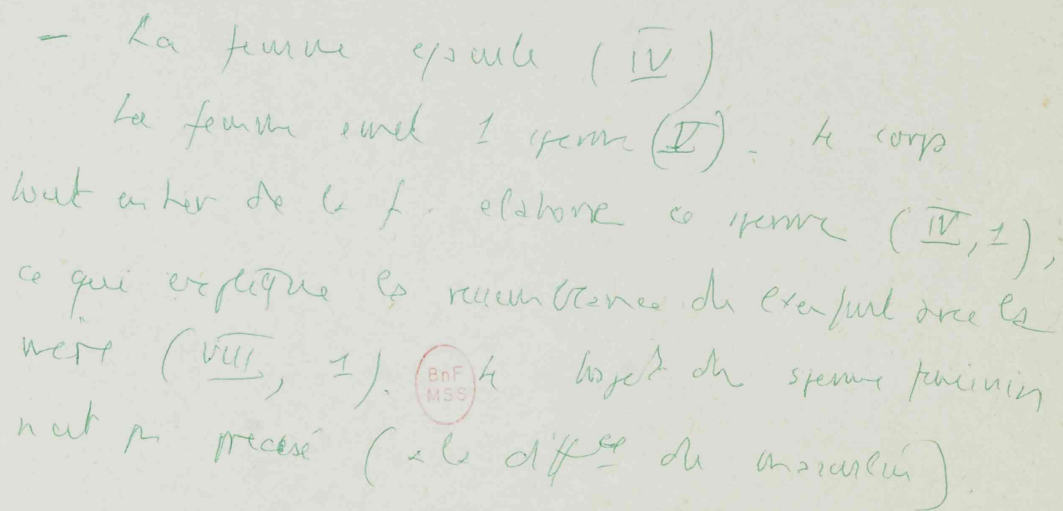 - La femme ejacule (IV)
La femme emet 1 sperme (V). Le corps
tout entier de la f. elabore ce sperme (IV, 1),
ce qui explique la ressemblance de l'enfant avec la
mère (VIII, 1). Le trajet du sperme feminin
n'est pas precisé (a la diffce du masculin).
BnF
MSS